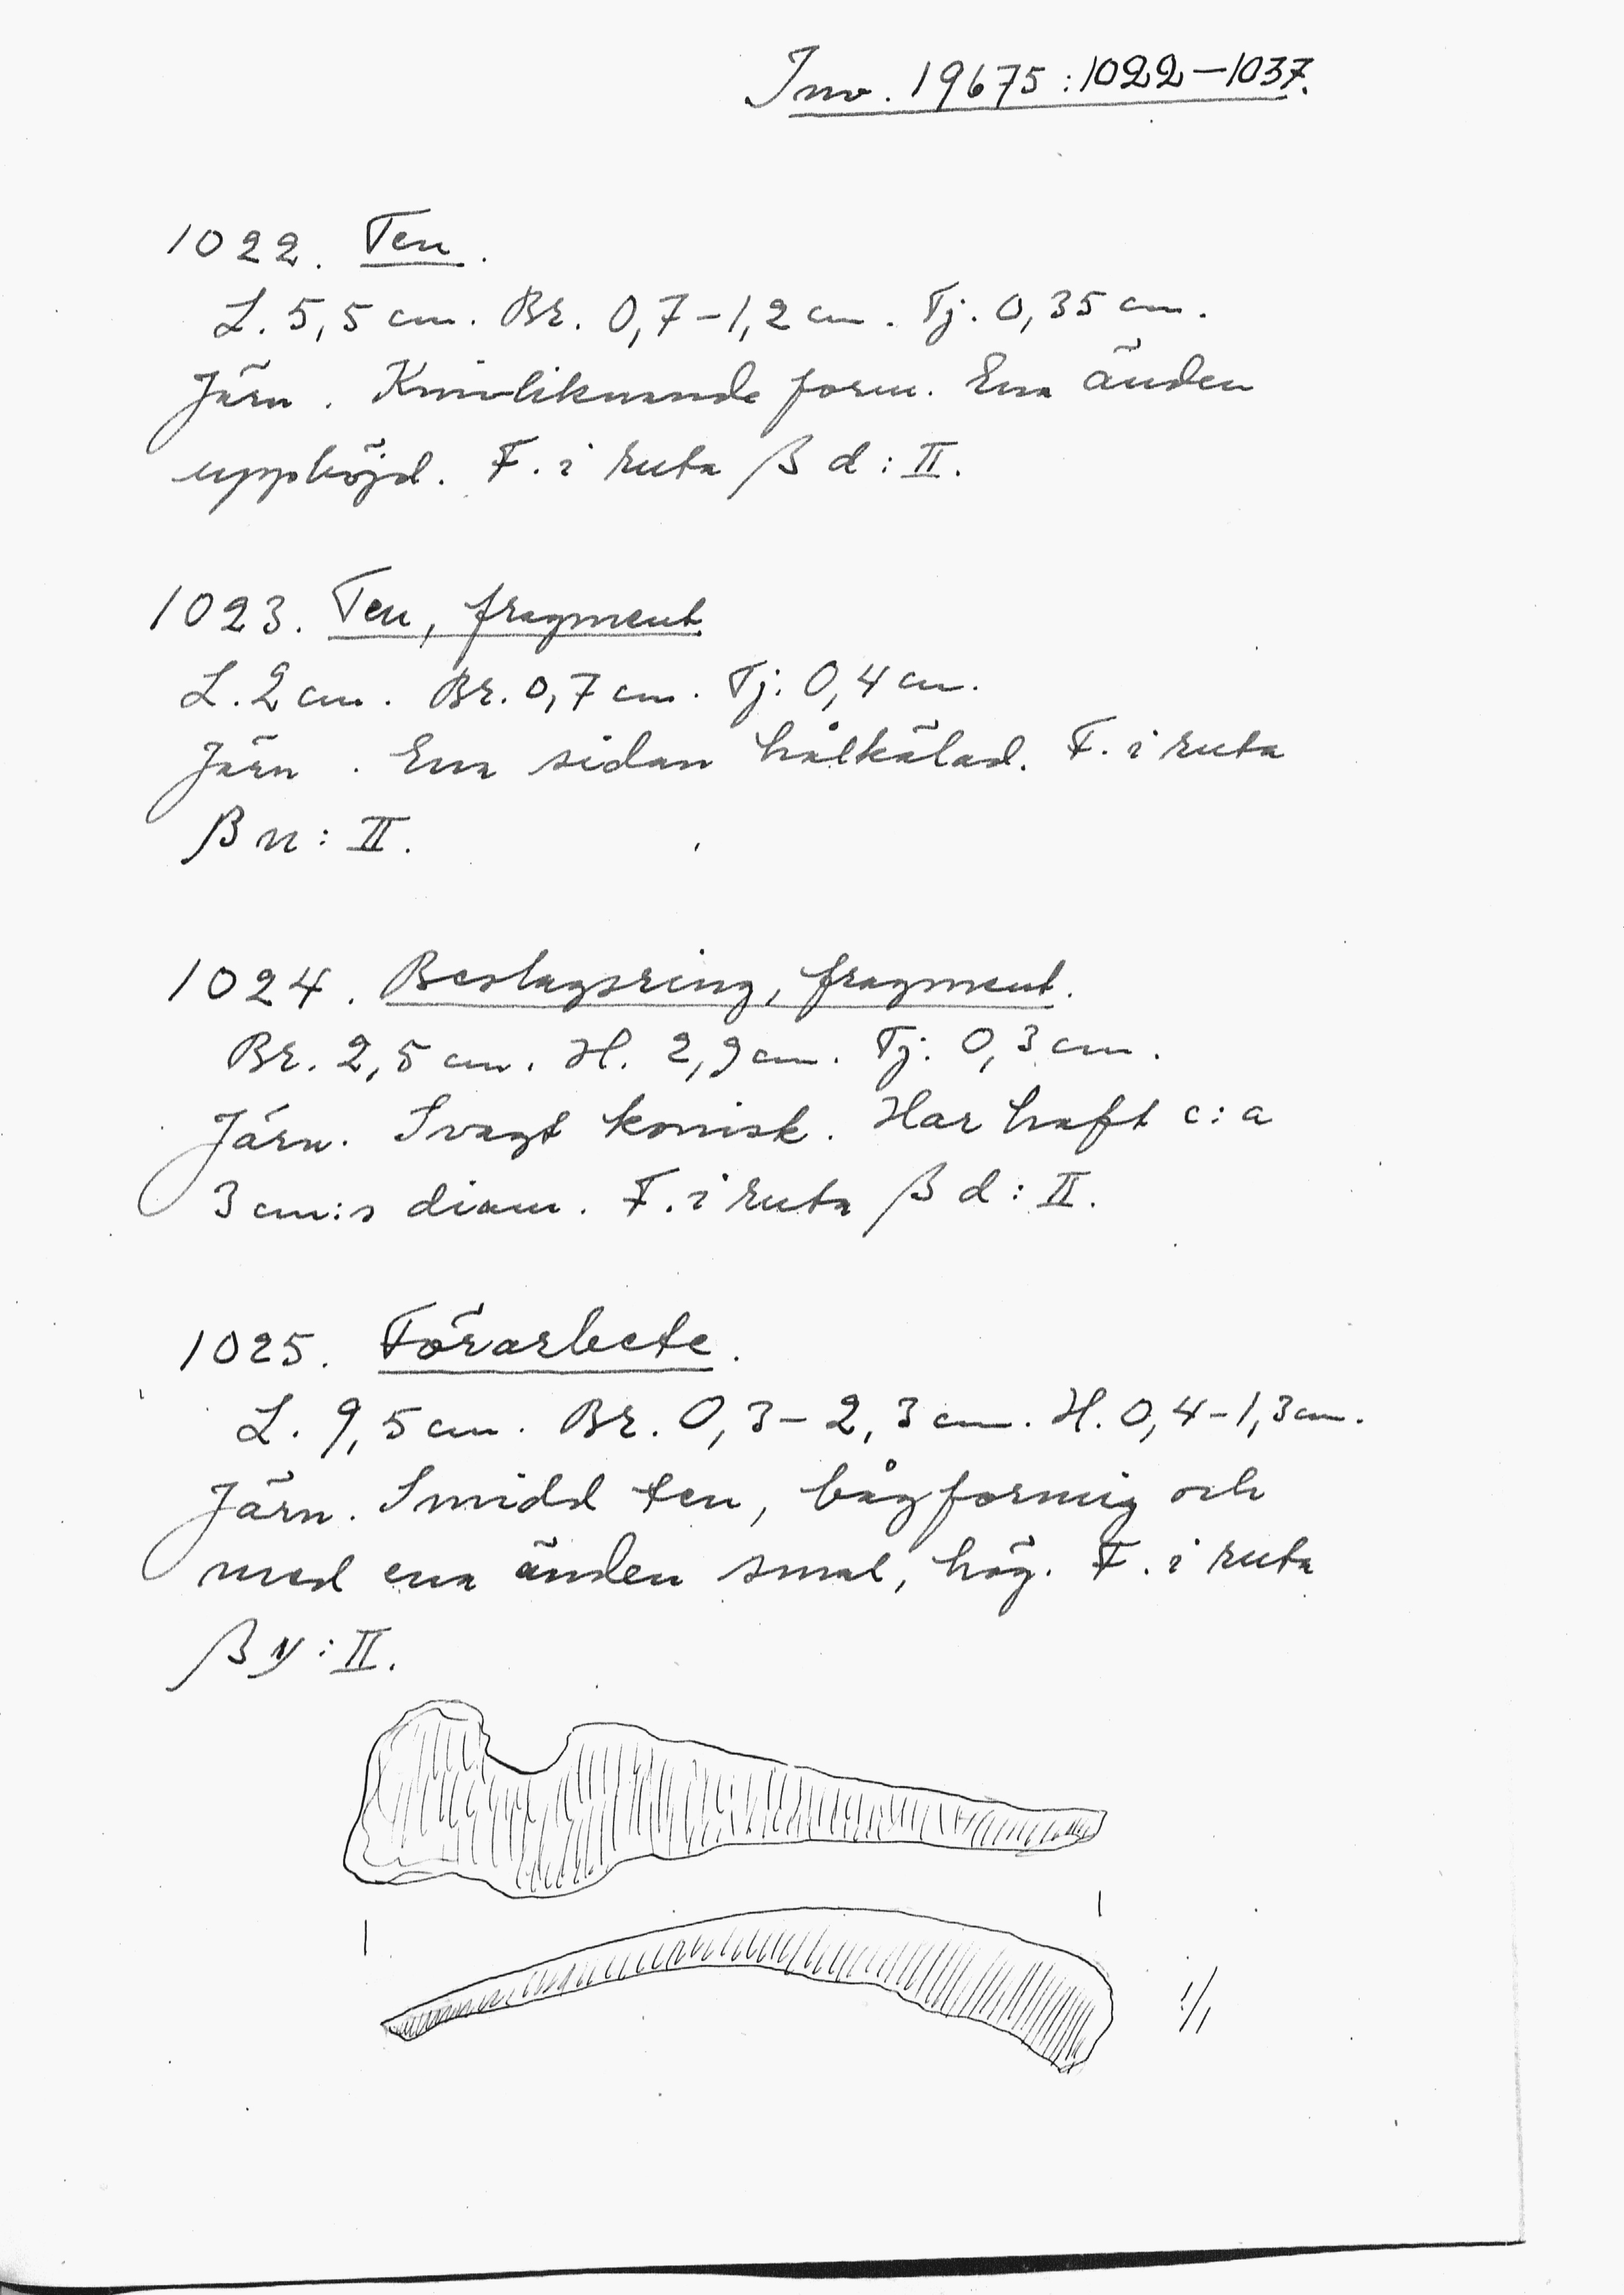 Inv. 19675:1022–1037.
1022. Ten.
L. 5,5 cm. Br. 0,7–1,2 cm. Tj. 0,35 cm.
Järn. Knivliknande form. Ena änden
uppböjd. F. i ruta β d: II.
1023. Ten, fragment
L. 2 cm. Br. 0,7 cm. Tj. 0,4 cm.
Järn. Ena sidan hålkälad. F. i ruta
β n: II.
1024. Beslagsring, fragment.
Br. 2,5 cm. H. 2,9 cm. Tj. 0,3 cm.
Järn. Svagt konisk. Har haft c:a
3 cm:s diam. F. i ruta β d: II.
1025. Förarbete.
L. 9,5 cm. Br. 0,3–2,3 cm. H. 0,4–1,3 cm.
Järn. Smidd ten, bågformig och
med ena änden smal, hög. F. i ruta
β : II.
1/1